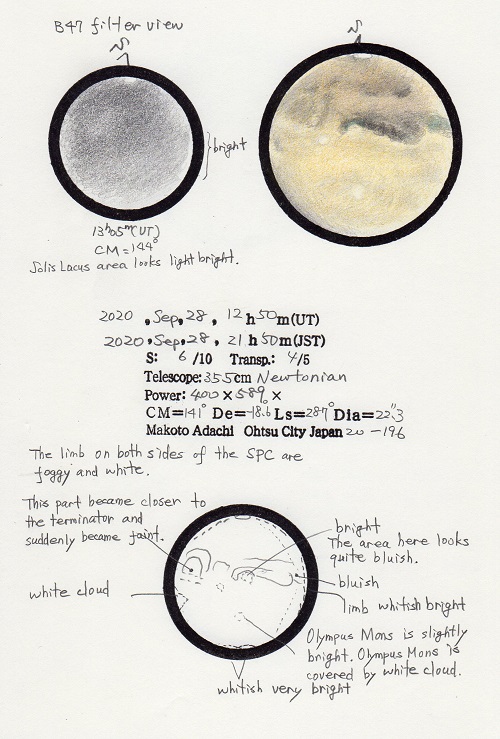 B47 filter view
S
S
bright
13h05m(UT)
CM=144°
Solis Lacus area looks light bright.
2020 , Sep, 28 , 12 h 50 m (UT)
2020 , Sep, 28 , 21 h 50 m (JST)
S: 6 /10 Transp.: 4/5
Telescope: 355cm Newtonian
Power: 400 × 589 ×
CM=141° De=-18.6 Ls=287° Dia=22".3
Makoto Adachi Ohtsu City Japan 20-196
The limb on both sides of the SPC are
foggy and white.
This part became closer to
the terminator and
suddenly became faint.
bright
The area here looks
quite bluish.
bluish
white cloud
limb whitish bright
Olympus Mons is slightly
bright. Olympus Mons is
covered by white cloud.
whitish very bright